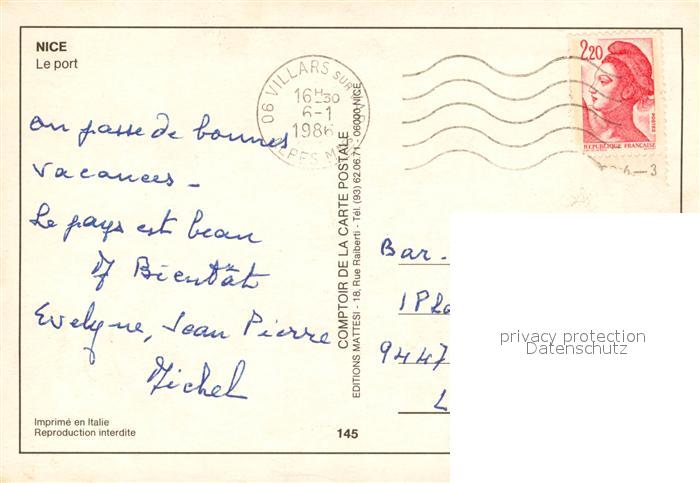 NICE
Le port
06 VILLARS SUR VAR
16H30
6-1
1986
ALPES MMES
2,20
POSTES
REPUBLIQUE FRANCAISE
on passe de bonnes
vacances -
Le pays est beau
A Bientôt
Evelyne, Jean Pierre
Michel
COMPTOIR DE LA CARTE POSTALE
EDITIONS MATTESI - 18, Rue Raiberti - Tél. (93) 62.06.71 - 06000 NICE
Bar.
1 Pla
9447
L
privacy protection
Datenschutz
Imprimé en Italie
Reproduction interdite
145